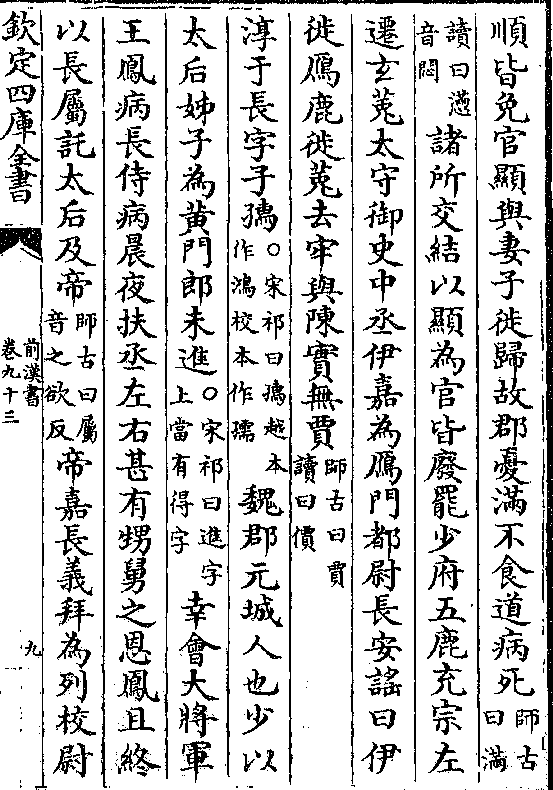 順皆免官顯與妻子徙歸故郡憂滿不食道病死師古曰滿
讀曰懣音悶諸所交結以顯為官皆廢罷少府五鹿充宗左
遷玄菟太守御史中丞伊嘉為鴈門都尉長安謠曰伊
徙鴈鹿徙菟去牢與陳實無賈師古曰賈讀曰價
淳于長字子孺○宋祁曰孺越本作鴻校本作孺魏郡元城人也少以
太后姊子為黄門郎未進○宋祁曰進字上當有得字幸會大將軍
王鳳病長侍病晨夜扶丞左右甚有甥舅之恩鳳且終
以長屬託太后及帝師古曰屬音之欲反帝嘉長義拜為列校尉
欽定四庫全書
前漢書
卷九十三
九